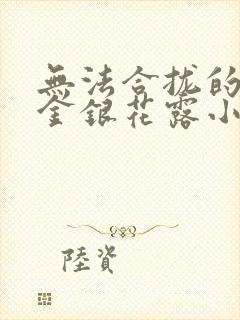 無法合拢的
金銀花露小
陸資